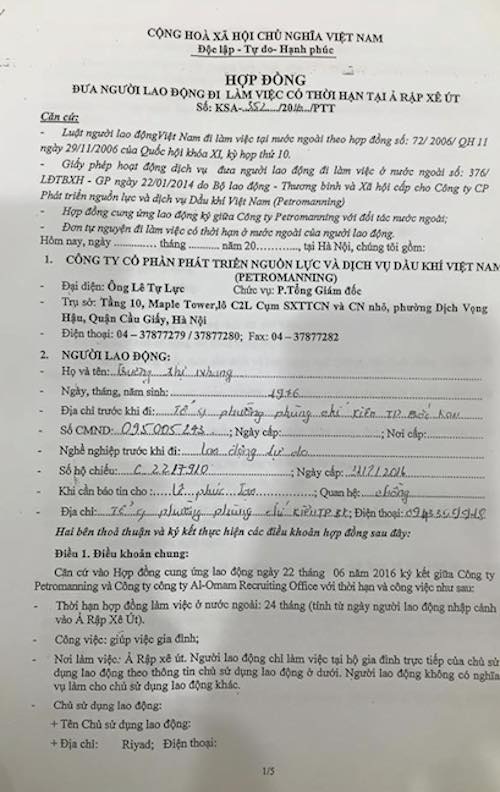 CỘNG HOÀ XÃ HỘI CHỦ NGHĨA VIỆT NAM
Độc lập - Tự do- Hạnh phúc
HỢP ĐỒNG
ĐƯA NGƯỜI LAO ĐỘNG ĐI LÀM VIỆC CÓ THỜI HẠN TẠI Ả RẬP XÊ ÚT
Số: KSA- /2016/PTT
Căn cứ:
- Luật người lao độngViệt Nam đi làm việc tại nước ngoài theo hợp đồng số: 72/ 2006/ QH 11
ngày 29/11/2006 của Quốc hội khóa XI, kỳ họp thứ 10.
- Giấy phép hoạt động dịch vụ đưa người lao động đi làm việc ở nước ngoài số: 376/
LĐTBXH - GP ngày 22/01/2014 do Bộ lao động - Thương binh và Xã hội cấp cho Công ty CP
Phát triển nguồn lực và dịch vụ Dầu khí Việt Nam (Petromanning)
- Hợp đồng cung ứng lao động ký giữa Công ty Petromanning với đối tác nước ngoài;
- Đơn tự nguyện đi làm việc có thời hạn ở nước ngoài của người lao động.
Hôm nay, ngày ............. tháng ......... năm 20..........., tại Hà Nội, chúng tôi gồm:
1. CÔNG TY CỔ PHẦN PHÁT TRIỂN NGUỒN LỰC VÀ DỊCH VỤ DẦU KHÍ VIỆT NAM
(PETROMANNING)
- Đại diện: Ông Lê Tự Lực Chức vụ: P.Tổng Giám đốc
- Trụ sở: Tầng 10, Maple Tower,lô C2L Cụm SXTTCN và CN nhỏ, phường Dịch Vọng
Hậu, Quận Cầu Giấy, Hà Nội
- Điện thoại: 04 – 37877279 / 37877280; Fax: 04 – 37877282
2. NGƯỜI LAO ĐỘNG:
- Họ và tên: Thị Nhung
- Ngày, tháng, năm sinh: 1976
- Địa chỉ trước khi đi: Tổ phường phùng chí Kiên TP Bắc Kạn
- Số CMND: 095005243; Ngày cấp:; Nơi cấp:
- Nghề nghiệp trước khi đi: lao động tự do
- Số hộ chiếu: C 2217910; Ngày cấp: /2016
- Khi cần báo tin cho : Lê phúc; Quan hệ: chồng
- Địa chỉ: Tổ phường phùng chí KiênTP; Điện thoại:
Hai bên thoả thuận và ký kết thực hiện các điều khoản hợp đồng sau đây:
Điều 1. Điều khoản chung:
Căn cứ vào Hợp đồng cung ứng lao động ngày 22 tháng 06 năm 2016 ký kết giữa Công ty
Petromanning và Công ty công ty Al-Omam Recruiting Office với thời hạn và công việc như sau:
- Thời hạn hợp đồng làm việc ở nước ngoài: 24 tháng (tính từ ngày người lao động nhập cảnh
vào Ả Rập Xê Út).
- Công việc: giúp việc gia đình;
- Nơi làm việc: Ả Rập xê út. Người lao động chỉ làm việc tại hộ gia đình trực tiếp của chủ sử
dụng lao động theo thông tin chủ sử dụng lao động ở dưới. Người lao động không có nghĩa
vụ làm cho chủ sử dụng lao động khác.
- Chủ sử dụng lao động:
+ Tên Chủ sử dụng lao động:
+ Địa chỉ: Riyad; Điện thoại:
1/5